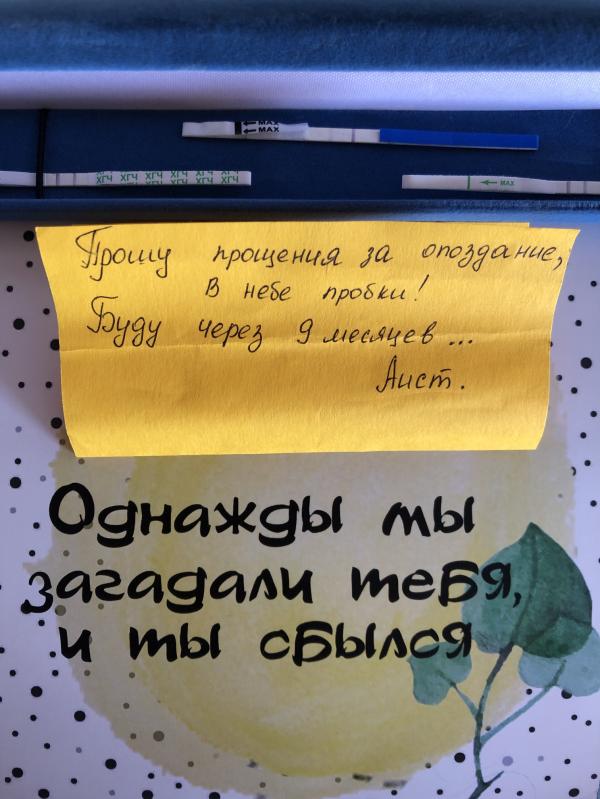 MAX
MAX
ХГЧ ХГЧ ХГЧ ХГЧ ХГЧ ХГЧ
ХГЧ ХГЧ ХГЧ ХГЧ ХГЧ ХГЧ
MAX
Прошу прощения за опоздание,
В небе пробки!
Буду через 9 месяцев...
Аист.
Однажды мы
загадали тебя,
и ты сбылся